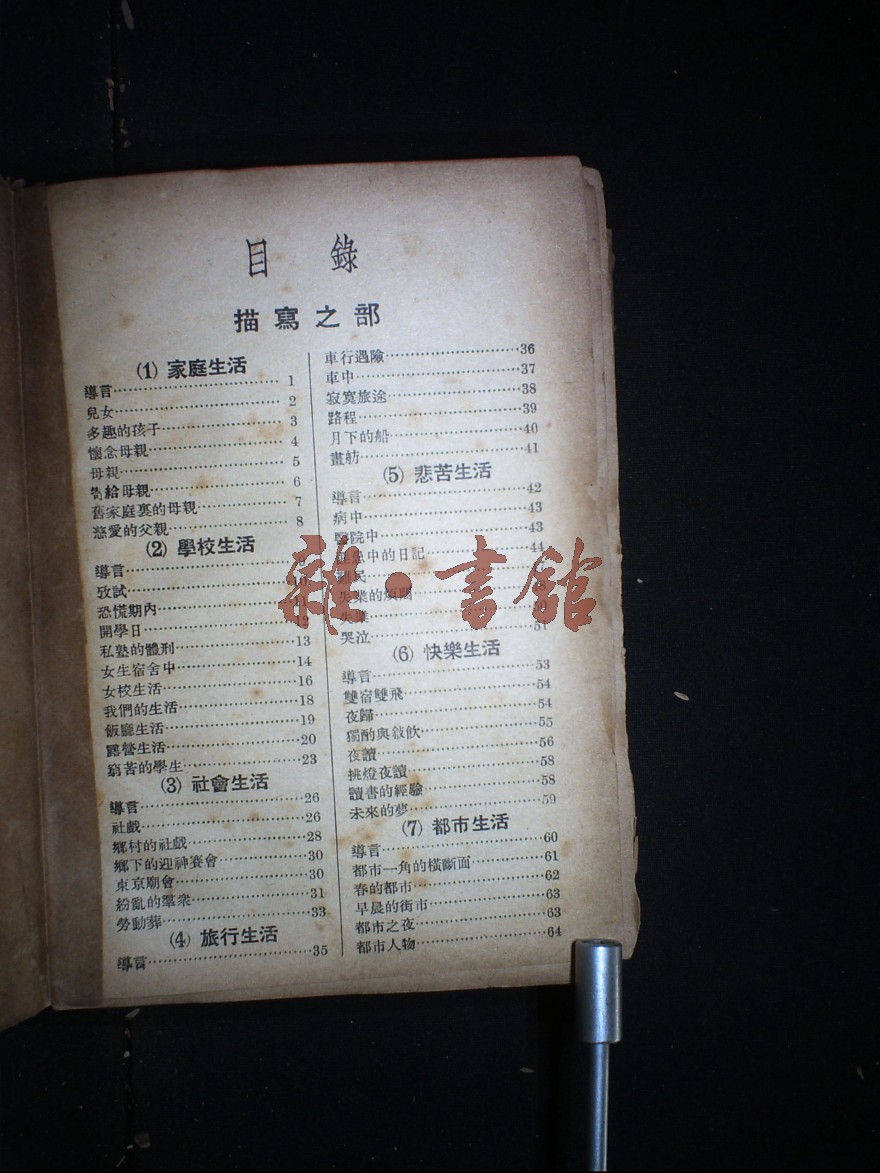 目錄
描寫之部
(1) 家庭生活
導言……1
兒女……2
多趣的孩子……3
懷念母親……4
母親……5
寄給母親……6
舊家庭裏的母親……7
慈愛的父親……8
(2) 學校生活
導言……
攷試……10
恐慌期內……11
開學日……12
私塾的體刑……13
女生宿舍中……14
女校生活……16
我們的生活……18
飯廳生活……19
露營生活……20
窮苦的學生……23
(3) 社會生活
導言……26
社戲……26
鄉村的社戲……28
鄉下的迎神賽會……30
東京廟會……30
紛亂的羣衆……31
勞動葬……33
(4) 旅行生活
導言……35
車行遇險……36
車中……37
寂寞旅途……38
路程……39
月下的船……40
畫舫……41
(5) 悲苦生活
導言……42
病中……43
醫院中……43
中的日記……44
難民……
失業的煩悶……48
失業……50
哭泣……51
(6) 快樂生活
導言……53
雙宿雙飛……54
夜歸……54
獨酌與敍飲……55
夜讀……56
挑燈夜讀……58
讀書的經驗……58
未來的夢……59
(7) 都市生活
導言……60
都市一角的橫斷面……61
春的都市……62
早晨的街市……63
都市之夜……63
都市人物……64
雜·書館